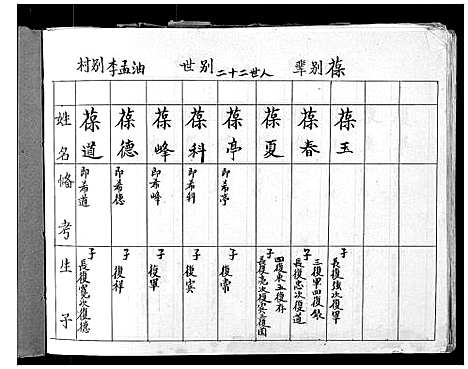 輩别葆
世别 二十二世人
村别李孟油
姓名
葆玉
葆春
葆夏
葆亭
葆科
葆峰
葆德
葆道
略考
即希亭
即希科
即希峰
即希德
即希道
生子
子 長復強次復單
三復甲四復銘
子 長復忠次復道
子 長復亮次復賓三復國
四復東五復存
子 復常
子 復賓
子 復單
子 復祥
子 長復寬次復德